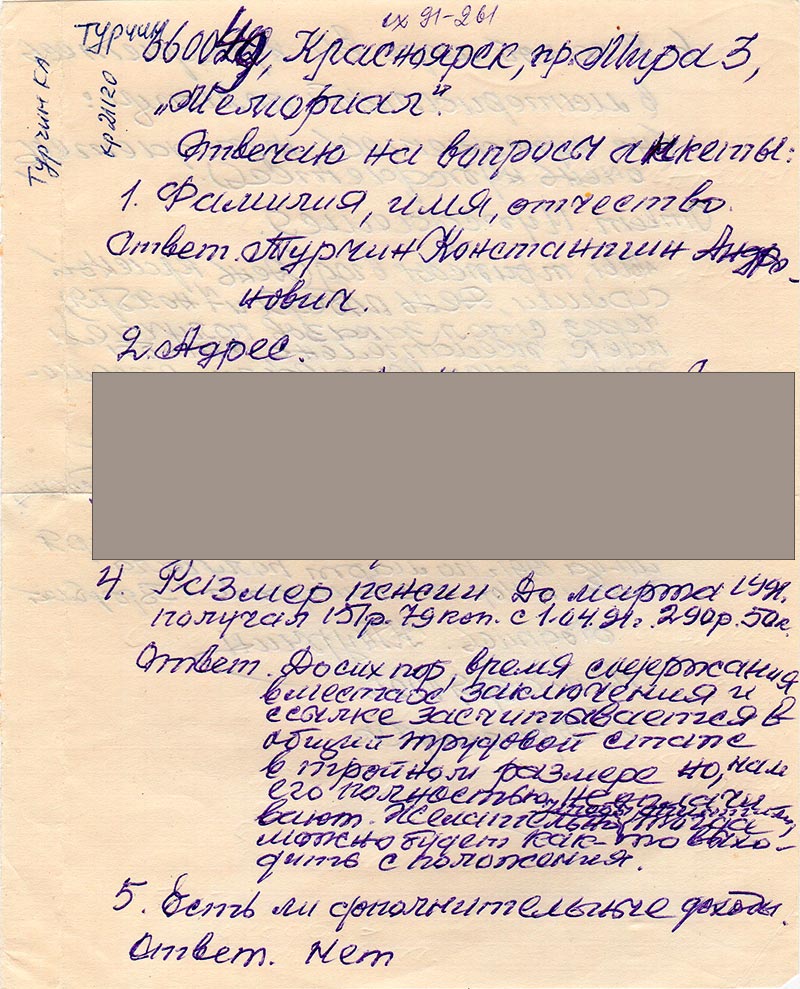 вх 91-261
Турчин К А
Кр 21120
Турчин
660049, Красноярск, пр. Мира 3,
„Мемориал".
Отвечаю на вопросы анкеты:
1. Фамилия, имя, отчество.
Ответ. Турчин Константин Андро-
нович.
2. Адрес.
4. Размер пенсии До марта 1991.
получал 151р. 79 коп. с 1.04.91г. 290р. 50к.
Ответ. До сих пор, время содержания
в местах заключения и
ссылке засчитывается в
общий трудовой стаже
в тройном размере но, нам
его полностью, не выплачи
вают. Желательно, тогда
можно будет как-то выхо-
дить с положения.
5. Есть ли дополнительные доходы.
Ответ. Нет